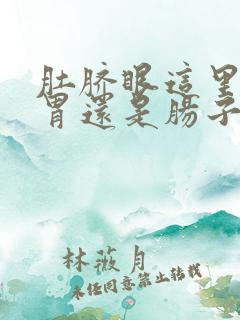 肚脐眼這里
胃還是腸子
林薇月
未经同意禁止转载